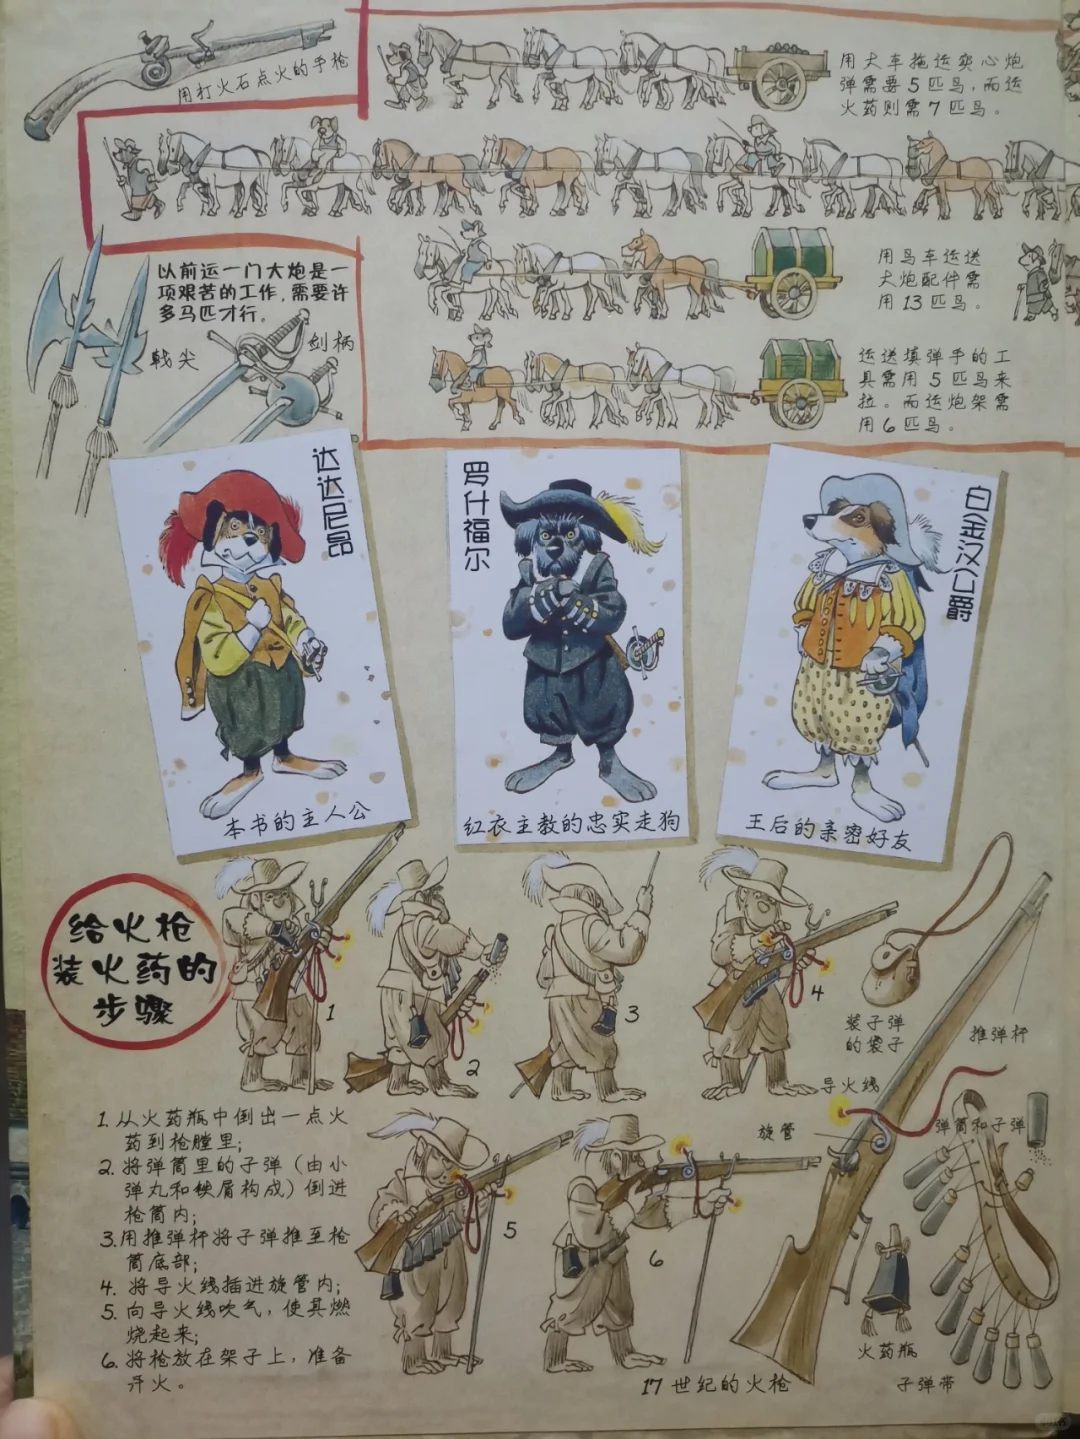 用打火石点火的手枪
用大车拖运实心炮
弹需要5匹马，而运
火药则需7匹马。
以前运一门大炮是一
项艰苦的工作，需要许
多马匹才行。
戟尖
剑柄
用马车运送
大炮配件需
用13匹马。
运送填弹手的工
具需用5匹马来
拉。而运炮架需
用6匹马。
达达尼昂
本书的主人公
罗什福尔
红衣主教的忠实走狗
白金汉公爵
王后的亲密好友
给火枪
装火药的
步骤
1
2
3
4
装子弹
的袋子
推弹杆
导火线
旋管
弹筒和子弹
1.从火药瓶中倒出一点火
药到枪膛里；
2.将弹筒里的子弹（由小
弹丸和铁屑构成）倒进
枪筒内；
3.用推弹杆将子弹推至枪
筒底部；
4.将导火线插进旋管内；
5.向导火线吹气，使其燃
烧起来；
6.将枪放在架子上，准备
开火。
5
6
火药瓶
17世纪的火枪
子弹带